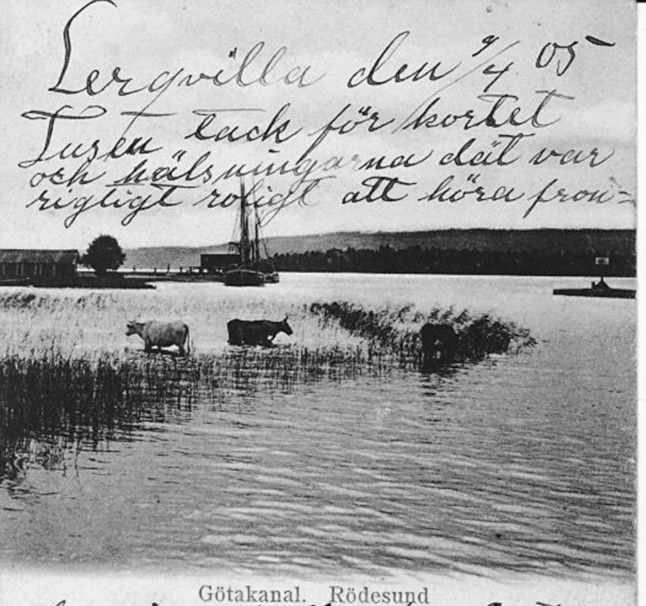 Lergvilla den 9/4 05
Tusen tack för kortet
och hälsningarna dät var
rigtigt roligt att höra från=
Götakanal. Rödesund